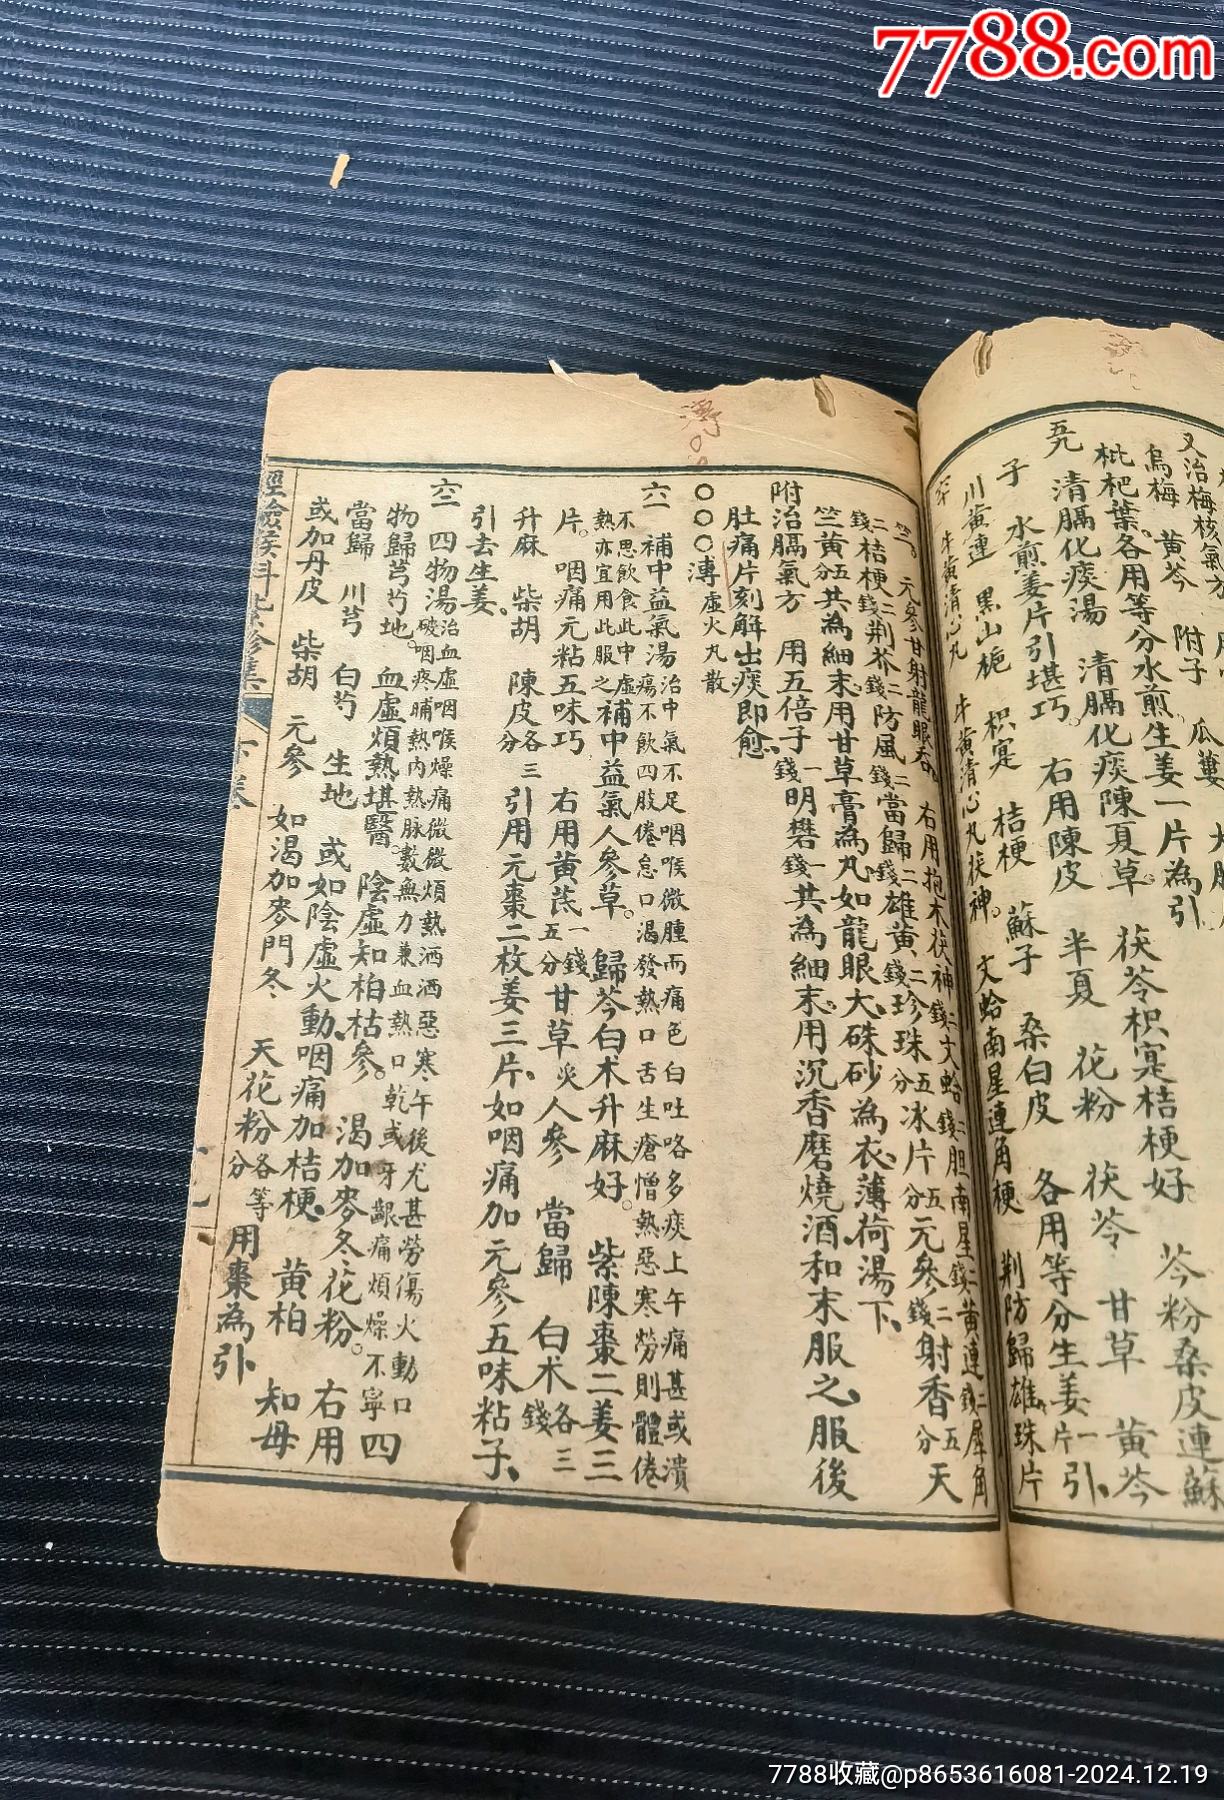 7788.com
又治梅核氣方
烏梅 黃芩 附子 瓜蔞
枇杷葉各用等分水煎生姜一片為引
清膈化痰湯 清膈化痰陳夏草 茯苓枳実桔梗好 芩粉桑皮連蘇
子 水煎姜片引堪巧 右用陳皮 半夏 花粉 茯苓 甘草 黃芩
川黃連 黑山梔 枳実 桔梗 蘇子 桑白皮 各用等分生姜一片引
牛黃清心丸 牛黃清心丸茯神 文蛤南星連角梗 荆防歸雄珠片
竺 元參甘射龍眼吞 右用抱木茯神二錢文蛤二錢胆南星二錢黃連二錢犀角
二錢桔梗二錢荆芥二錢防風二錢當歸二錢雄黃二錢珍珠五分冰片五分元參二錢射香五分天
竺黃五分共為細末用甘草膏為丸如龍眼大硃砂為衣薄荷湯下
附治膈氣方 用五倍子一錢明礬一錢共為細末用沉香磨燒酒和末服之服後
肚痛片刻解出痰即愈
〇〇〇漙虛火丸散
六 補中益氣湯治中氣不足咽喉微腫而痛色白吐咯多痰上午痛甚或潰
瘍不飲四肢倦怠口渴發熱口舌生瘡憎熱惡寒勞則體倦
不思飲食此中虛
熱亦宜用此服之補中益氣人參草 歸芩白术升麻好 紫陳棗二姜三
片 咽痛元粘五味巧 右用黃芪一錢五分甘草炙人參 當歸 白术各三錢
升麻 柴胡 陳皮各三分引用元棗二枚姜三片如咽痛加元參五味粘子
引去生姜
六二 四物湯治血虛咽喉燥痛微微煩熱洒洒惡寒午後尤甚勞傷火動口
破咽疼晡熱內熱脉數無力兼血熱口乾或牙齦痛煩燥不寧四
物歸芎芍地 血虛煩熱堪醫 陰虛知柏枯參 渴加麥冬花粉 右用
當歸 川芎 白芍 生地 或如陰虛火動咽痛加桔梗 黃柏 知母
或加丹皮 柴胡 元參 如渴加麥門冬 天花粉各等分用棗為引
經驗喉科紫珍集 下卷
7788收藏@p8653616081-2024.12.19